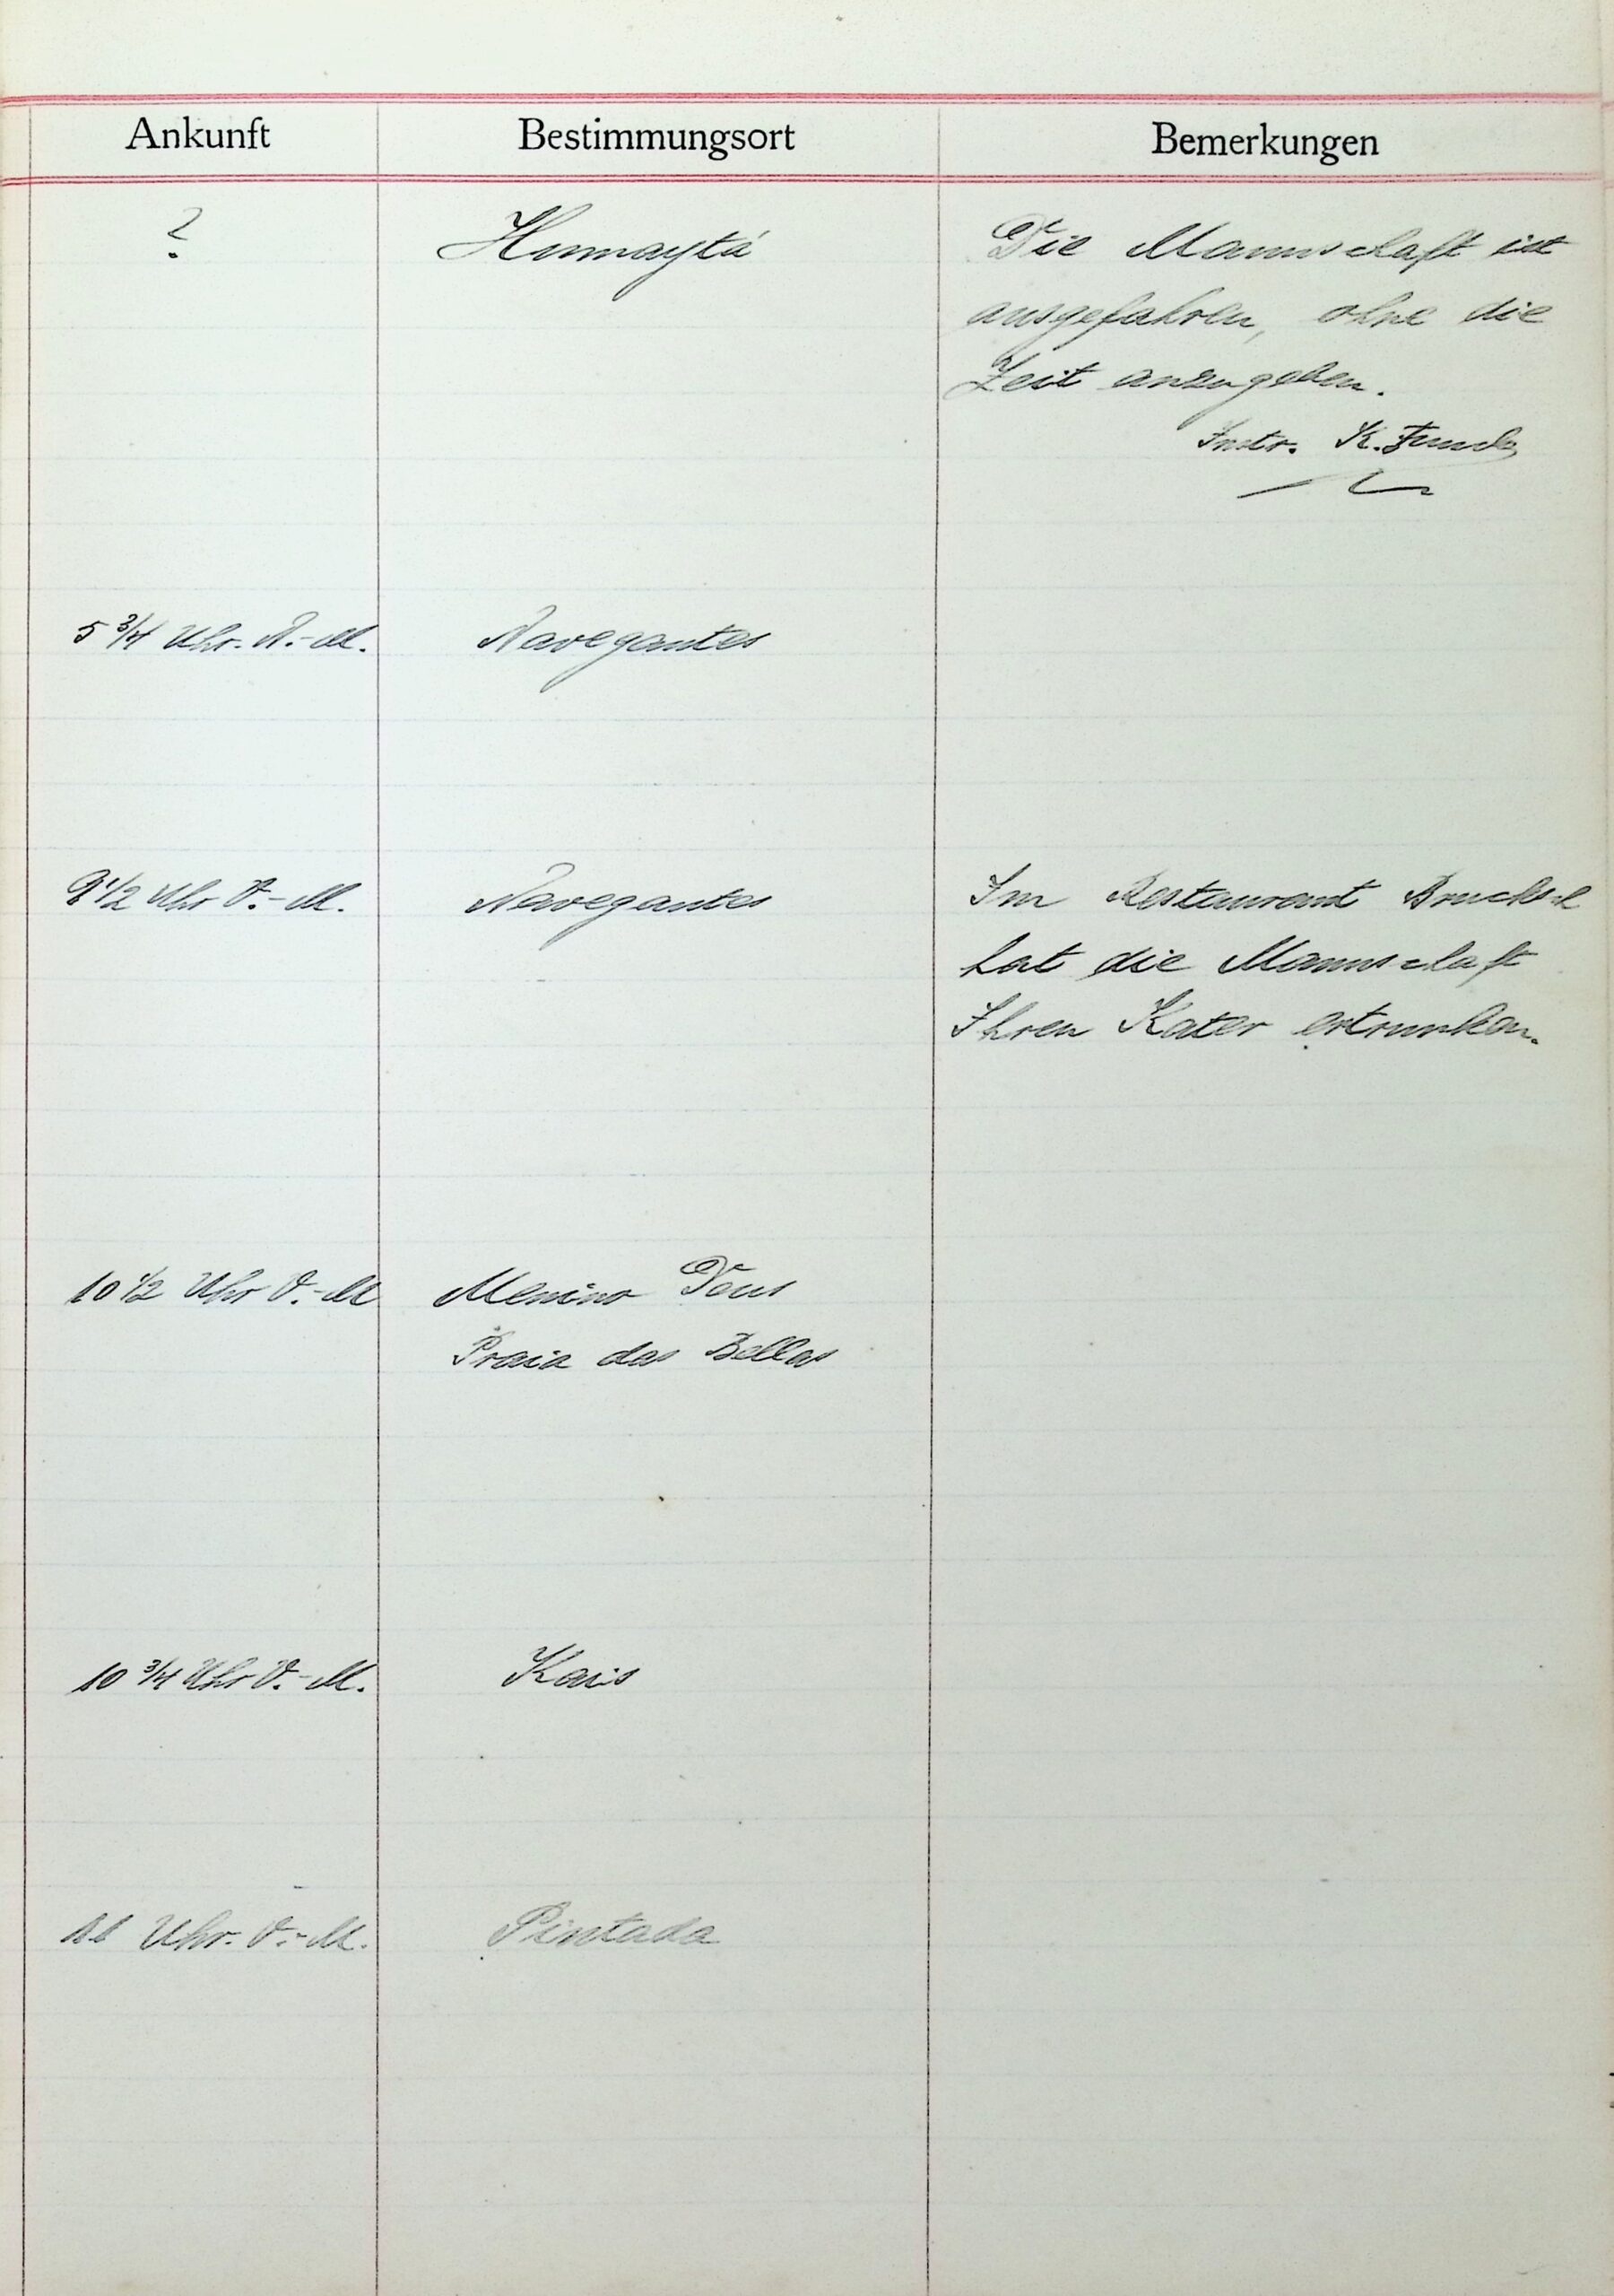 Ankunft Bestimmungsort Bemerkungen
? Humaytá Die Mannschaft ist
ausgefahren, ohne die
Zeit anzugeben.
Instr. K.
5 3/4 Uhr. N.-M. Navegantes
9 1/2 Uhr V.-M. Navegantes Im Restaurant
hat die Mannschaft
Ihren Kater ertrunken.
10 1/2 Uhr V.-M Menino Deus
Praia das Bellas
10 3/4 Uhr V.-M. Kais
Uhr. V.-M. Pintada